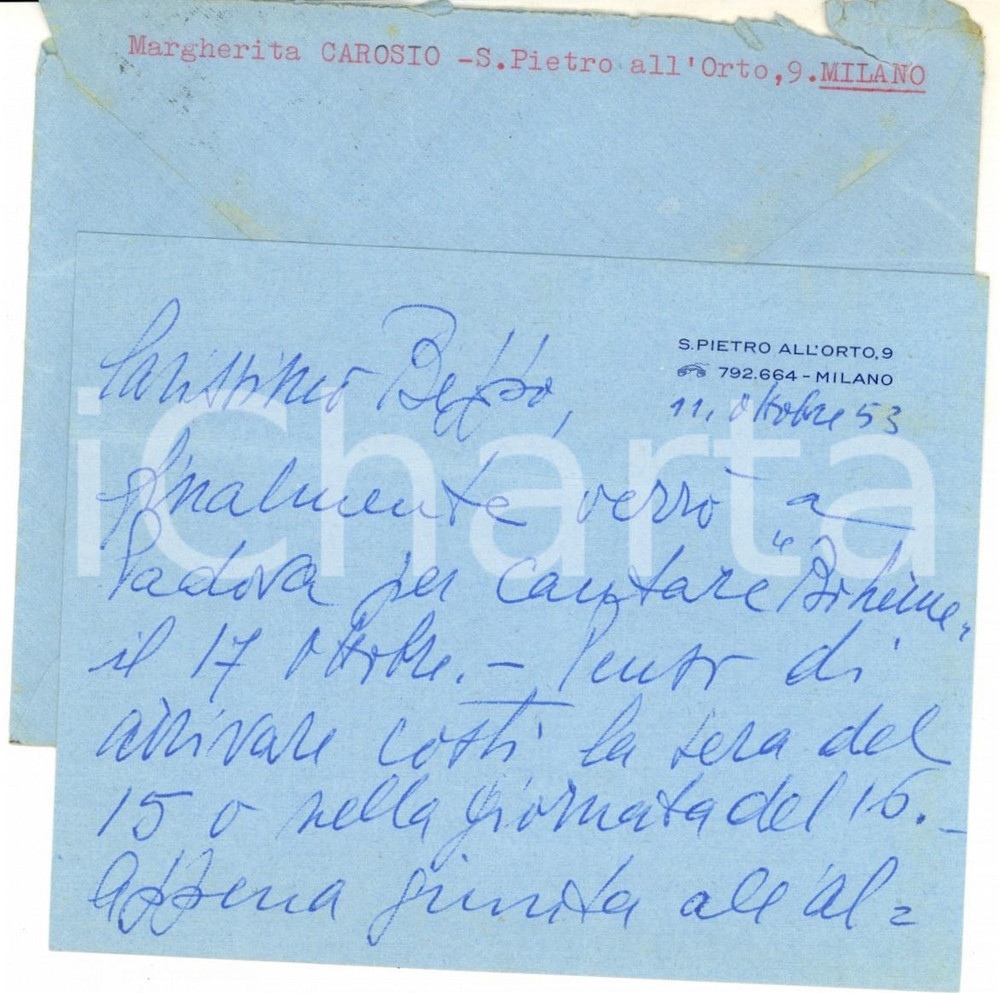 Margherita CAROSIO -S.Pietro all'Orto,9.MILANO
S.PIETRO ALL'ORTO,9
792.664 - MILANO
11, ottobre 53
Carissimo Beppo,
finalmente verrò a
Padova per cantare "Bohème"
il 17 ottobre. - Penso di
arrivare costì la sera del
15 o nella giornata del 16. -
Appena giunta all'al=
iCharta